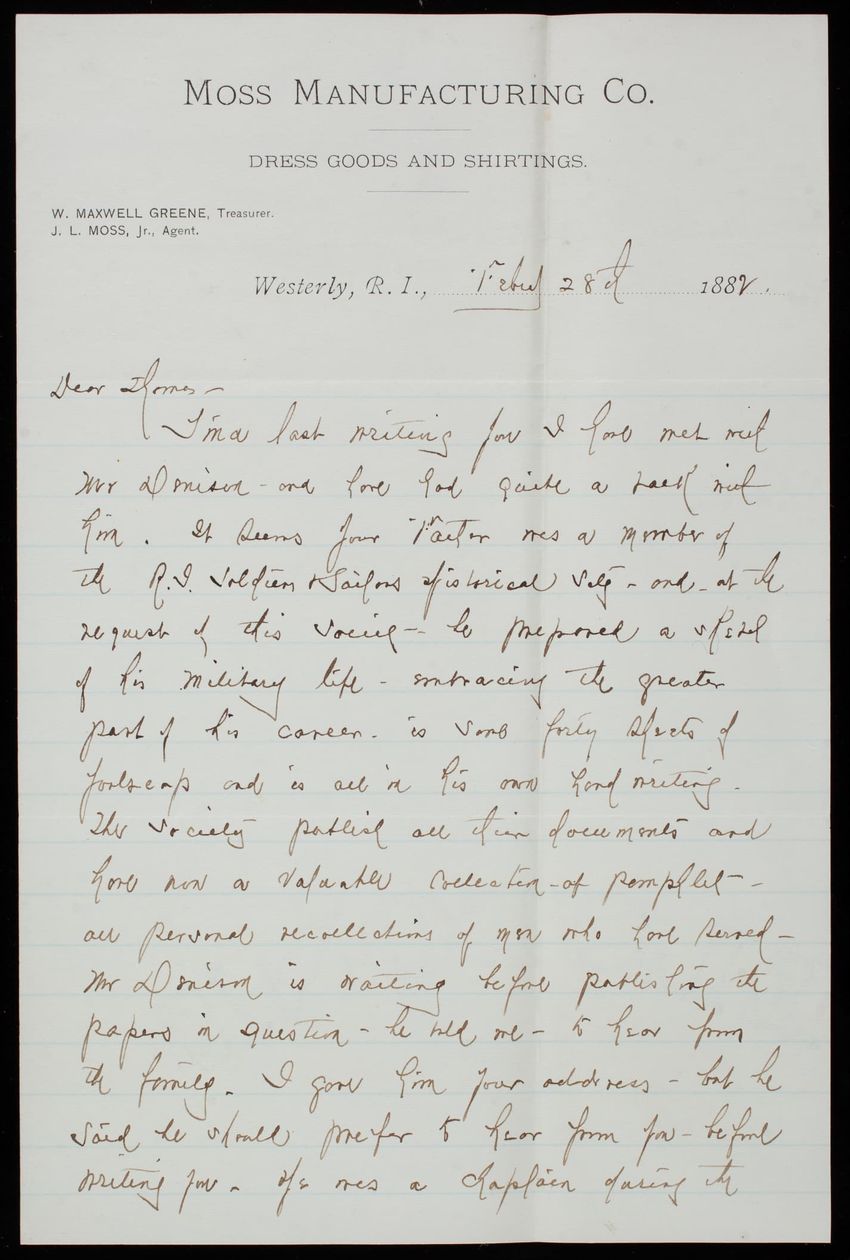 MOSS MANUFACTURING CO.
DRESS GOODS AND SHIRTINGS.
W. MAXWELL GREENE, Treasurer.
J. L. MOSS, Jr., Agent.
Westerly, R. I., Feby 28th 1882.
Dear Thomas —
Since last writing you I have met with
Mr Denison - and have had quite a talk with
him. It seems your Father was a member of
the R.I. Soldiers & Sailors Historical Socy - and - at the
request of this Society - he prepared a sketch
of his military life - embracing the greater
part of his career. is some forty sheets of
foolscap and is all in his own hand writing.
The Society publish all their documents and
have now a valuable collection - of pamphlets -
all personal recollections of men who have served -
Mr Denison is waiting before publishing the
papers in question - he told me - to hear from
the family. I gave him your address - but he
said he should prefer to hear from you - before
writing you. He was a chaplain during the